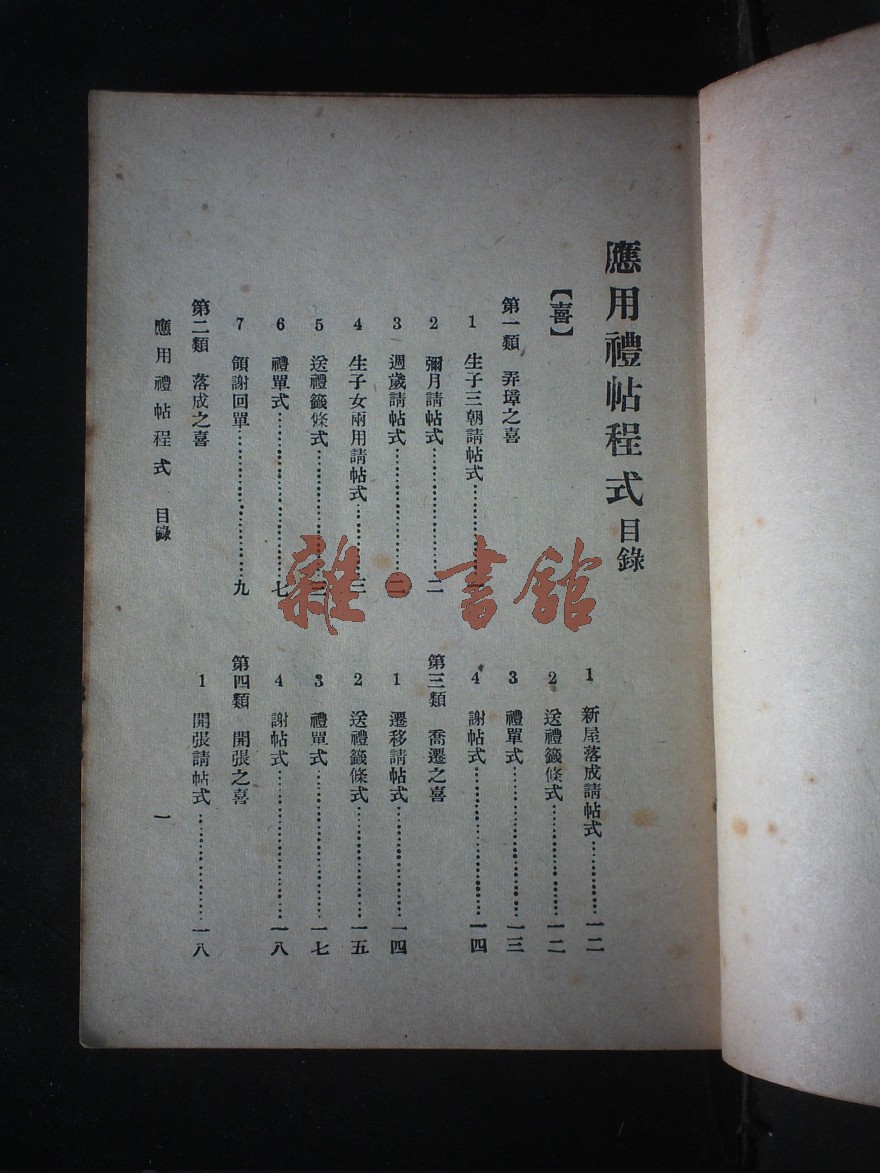 應用禮帖程式 目錄
【喜】
第一類 弄璋之喜
1 生子三朝請帖式…………
2 彌月請帖式…………二
3 週歲請帖式…………二
4 生子女兩用請帖式…………三
5 送禮籤條式…………三
6 禮單式…………七
7 領謝回單…………九
第二類 落成之喜
1 新屋落成請帖式…………一二
2 送禮籤條式…………一二
3 禮單式…………一三
4 謝帖式…………一四
第三類 喬遷之喜
1 遷移請帖式…………一四
2 送禮籤條式…………一五
3 禮單式…………一七
4 謝帖式…………一八
第四類 開張之喜
1 開張請帖式…………一八
應用禮帖程式 目錄 一
雜·書館